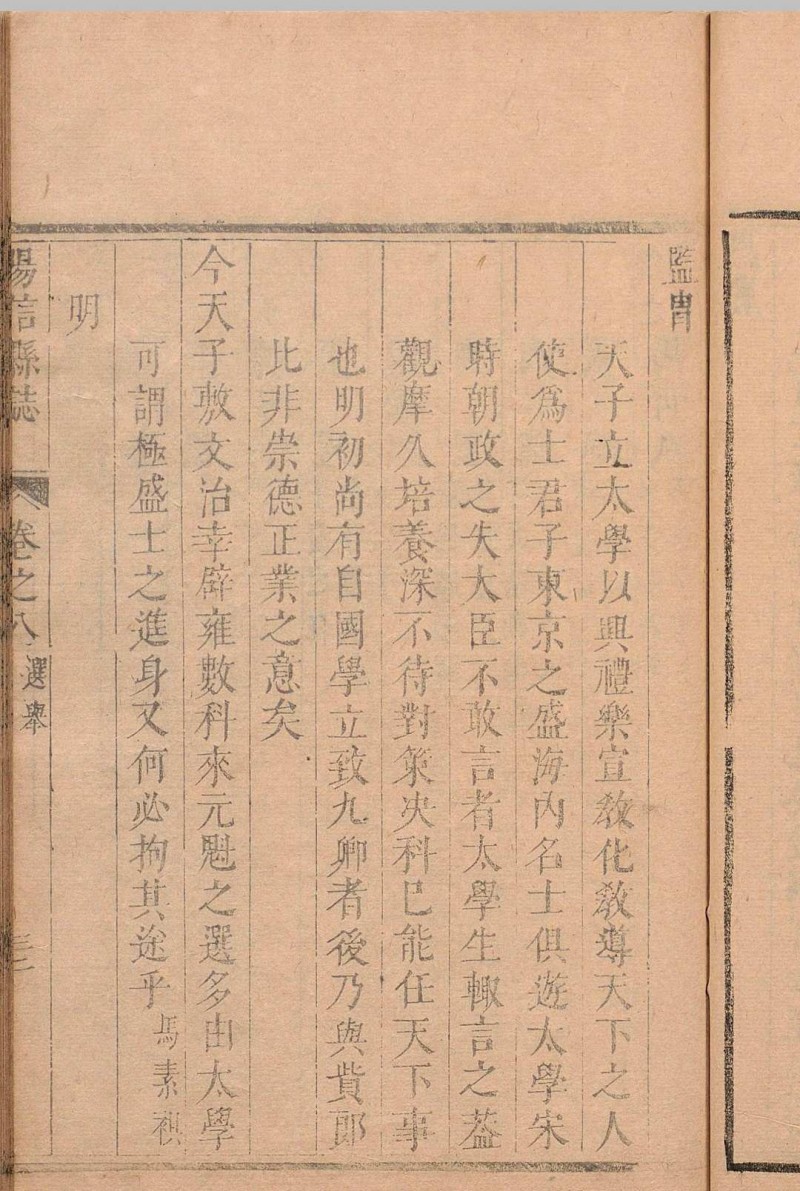 監胄
天子立太學以興禮樂宣教化教導天下之人
使爲士君子東京之盛海內名士俱遊太學宋
時朝政之失大臣不敢言者太學生輙言之葢
觀摩久培養深不待對策決科已能任天下事
也明初尚有自國學立致九卿者後乃與貲郎
比非崇德正業之意矣
今天子敷文治幸辟雍數科來元魁之選多由太學
可謂極盛士之進身又何必拘其途乎 馬素祺
明
陽信縣誌 卷之八 選舉